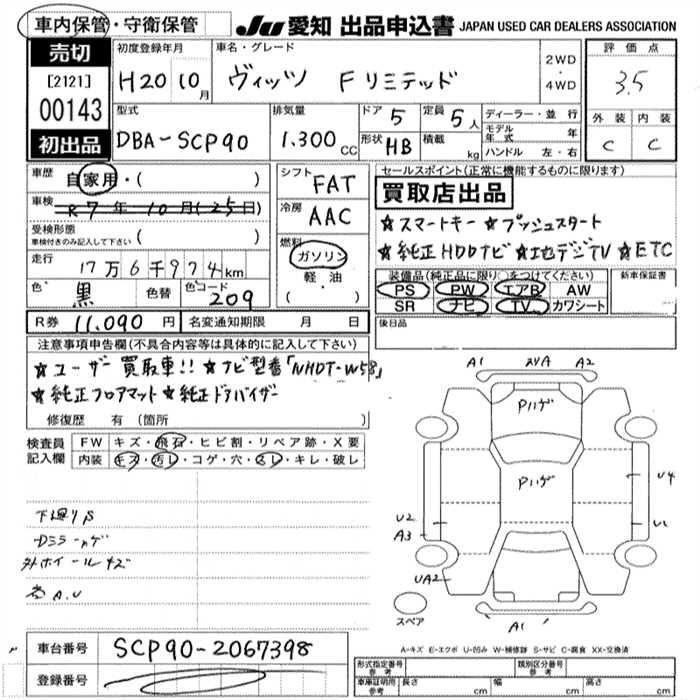 車内保管・守衛保管 JU 愛知 出品申込書 JAPAN USED CAR DEALERS ASSOCIATION
売切
[2121]
00143
初出品
初度登録年月 H20 10月
車名・グレード ヴィッツ Fリミテッド
2WD・4WD
評価点 3.5
型式 DBA-SCP90
排気量 1.300cc
ドア 5
定員 5人
形状 HB
積載 kg
ディーラー・並行
モデル年式 年
ハンドル 左・右
外装 C
内装 C
車歴 自家用・( )
車検 R7年10月(25日)
受検形態
車検付きのみ記入して下さい ( )
走行 17万6千974km
色 黒 色替 色コード 209
シフト FAT
冷房 AAC
燃料 ガソリン
軽・油
( )
R券 11.090円 名変通知期限 月 日
セールスポイント(正常に機能するものに限ります)
買取店出品
★スマートキー★プッシュスタート
★純正HDDナビ★地デジTV★ETC
装備品(純正品に限り○をつけてください) 新車保証書
PS PW エアB AW
SR ナビ TV カワシート
後日品
注意事項申告欄(不具合内容等は具体的に記入して下さい)
★ユーザー買取車!!★ナビ型番「NHDT-W58」
★純正フロアマット★純正ドアバイザー
修復歴 有(箇所 )
検査員記入欄
FW キズ・飛石・ヒビ割・リペア跡・X要
内装 キズ・汚レ・コゲ・穴・スレ・キレ・破レ
下廻りS
外ホイールキズ
A1 A2
Pハゲ
Pハゲ
U2
A3
U4
U1
UA2
A1
スペア
A-キズ E-エクボ U-凹み W-補修跡 S-サビ C-腐食 XX-交換済
車台番号 SCP90-2067398
登録番号
形式指定番号 参考 類別区分番号 参考
車庫証明用 参考 長さ cm 幅 cm 高さ cm